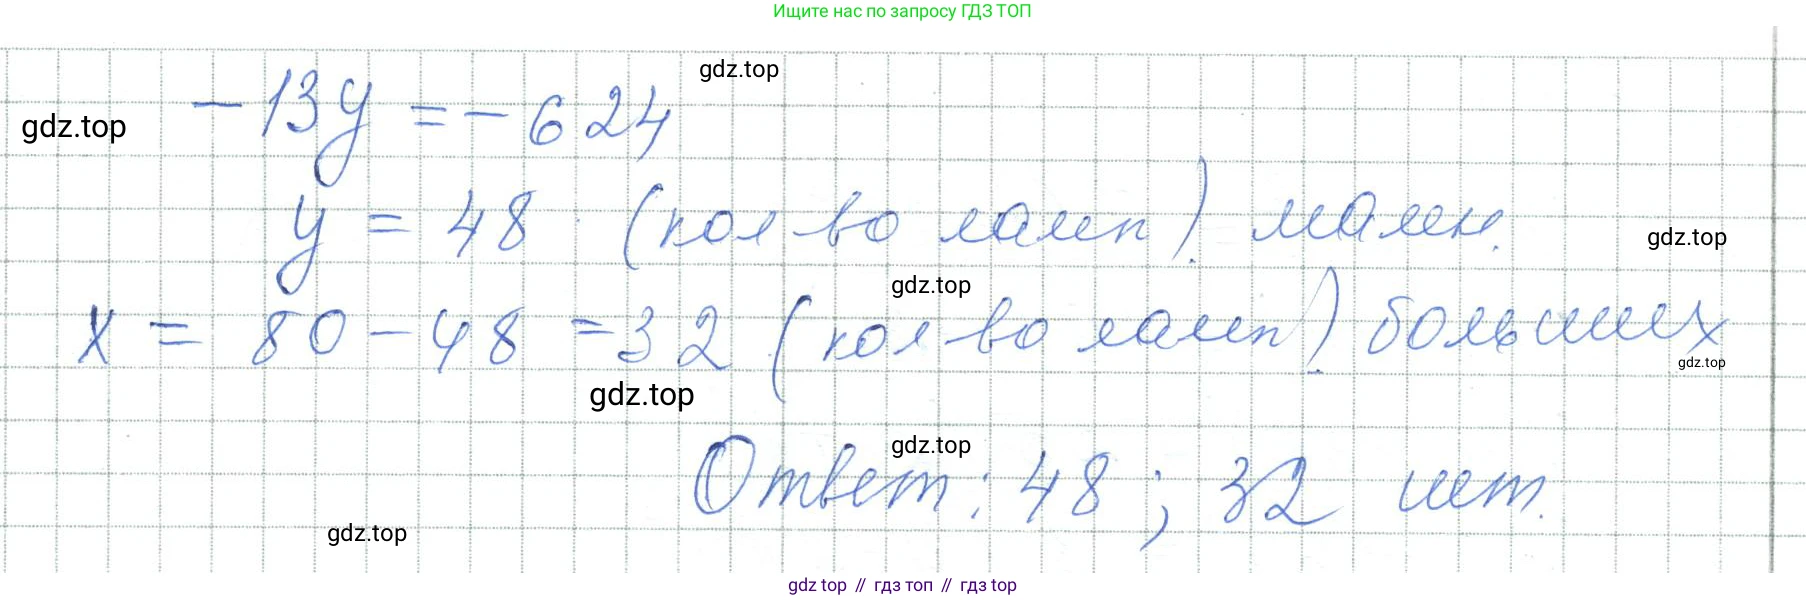 Ищите нас по запросу ГДЗ ТОП
gdz.top
-13y = -624
gdz.top
y = 48 (кол-во ламп) мален.
gdz.top
gdz.top
x = 80 - 48 = 32 (кол-во ламп) больших
gdz.top
gdz.top
gdz.top
Ответ: 48; 32 шт.
gdz.top
gdz top // гдз топ // гдз top